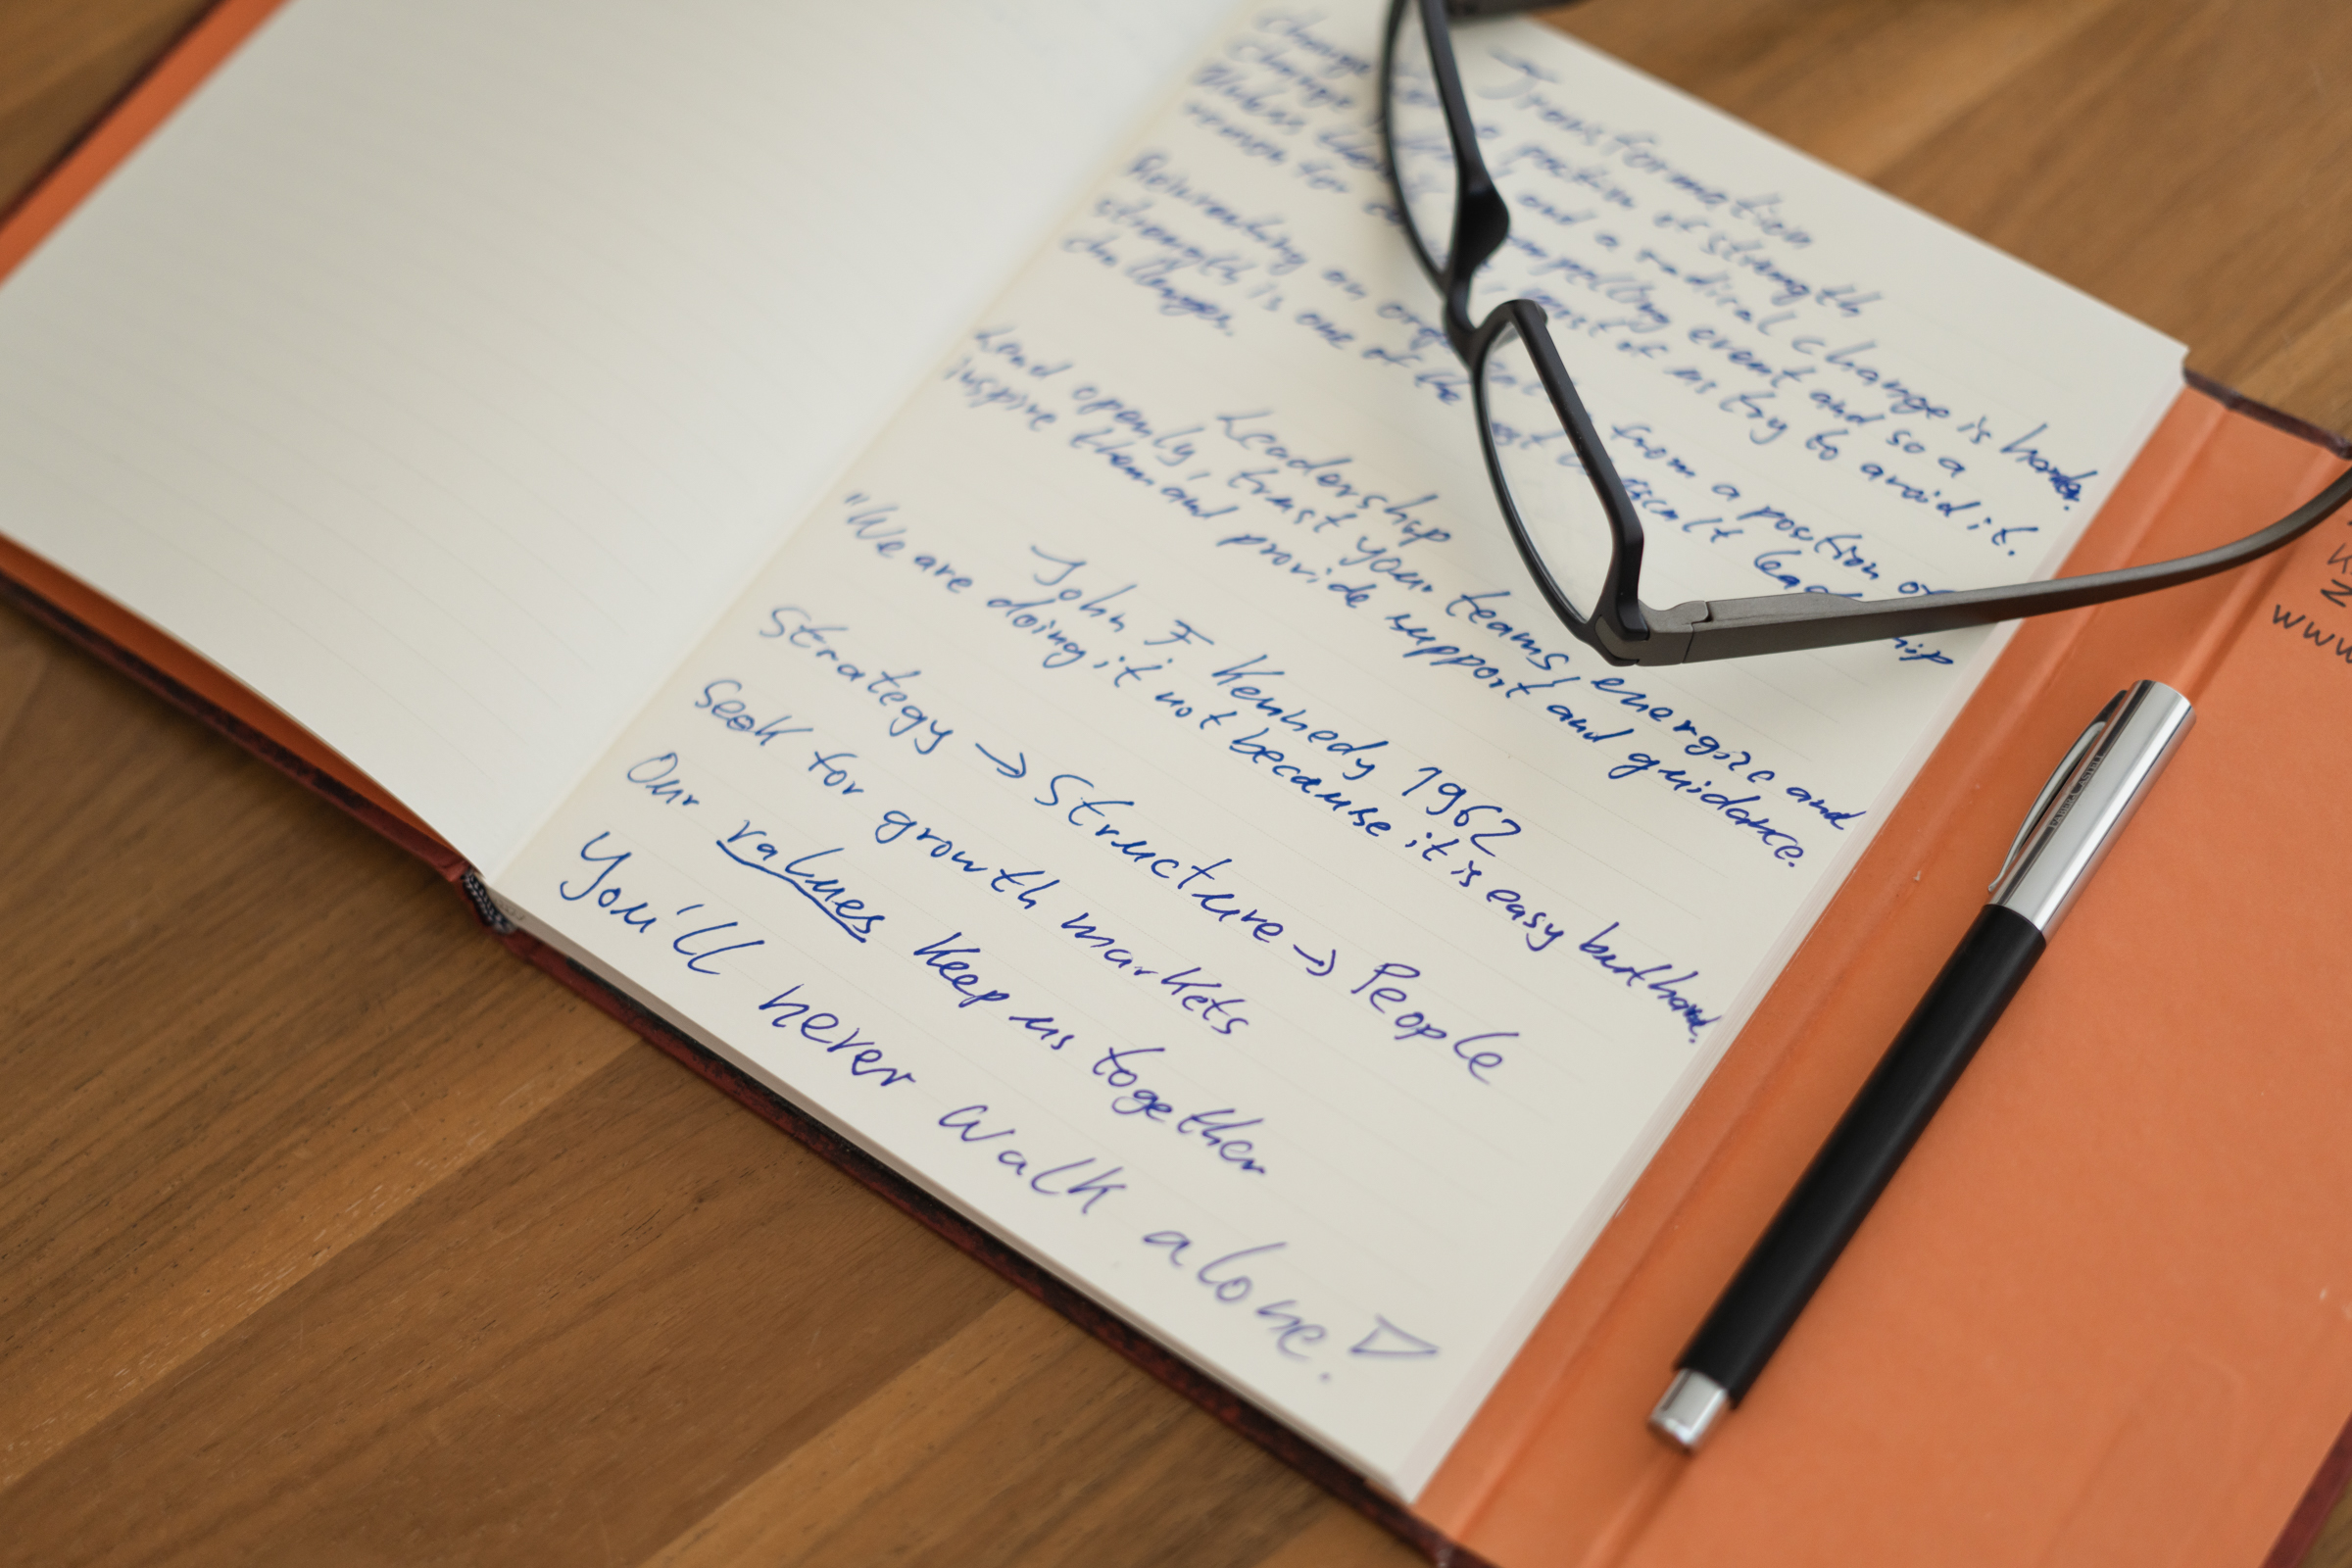 Transformation
Change position of strength
Change and a radical change is harder.
Makes compelling event and so a
reason for most of us try to avoid it.
Reinventing an from a position of
strength is one of the difficult
challenges.
Leadership
Lead openly, trust your teams, energize and
inspire them and provide support and guidance.
John F Kennedy 1962
"We are doing it not because it is easy but hard.
Strategy → Structure → People
Seek for growth markets
Our values keep us together
You'll never walk alone!
www
FABER-CASTELL